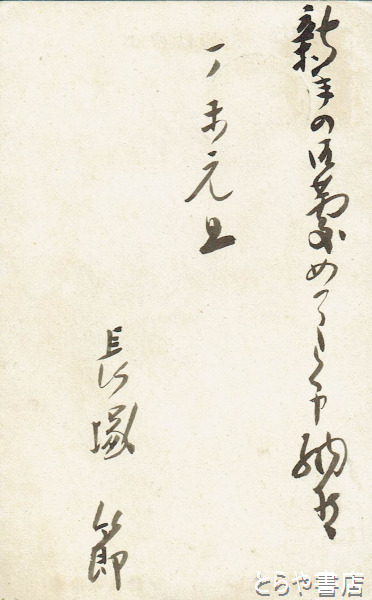 新年の御慶めでたく申納候
丁未元旦
長塚 節
とらや書店